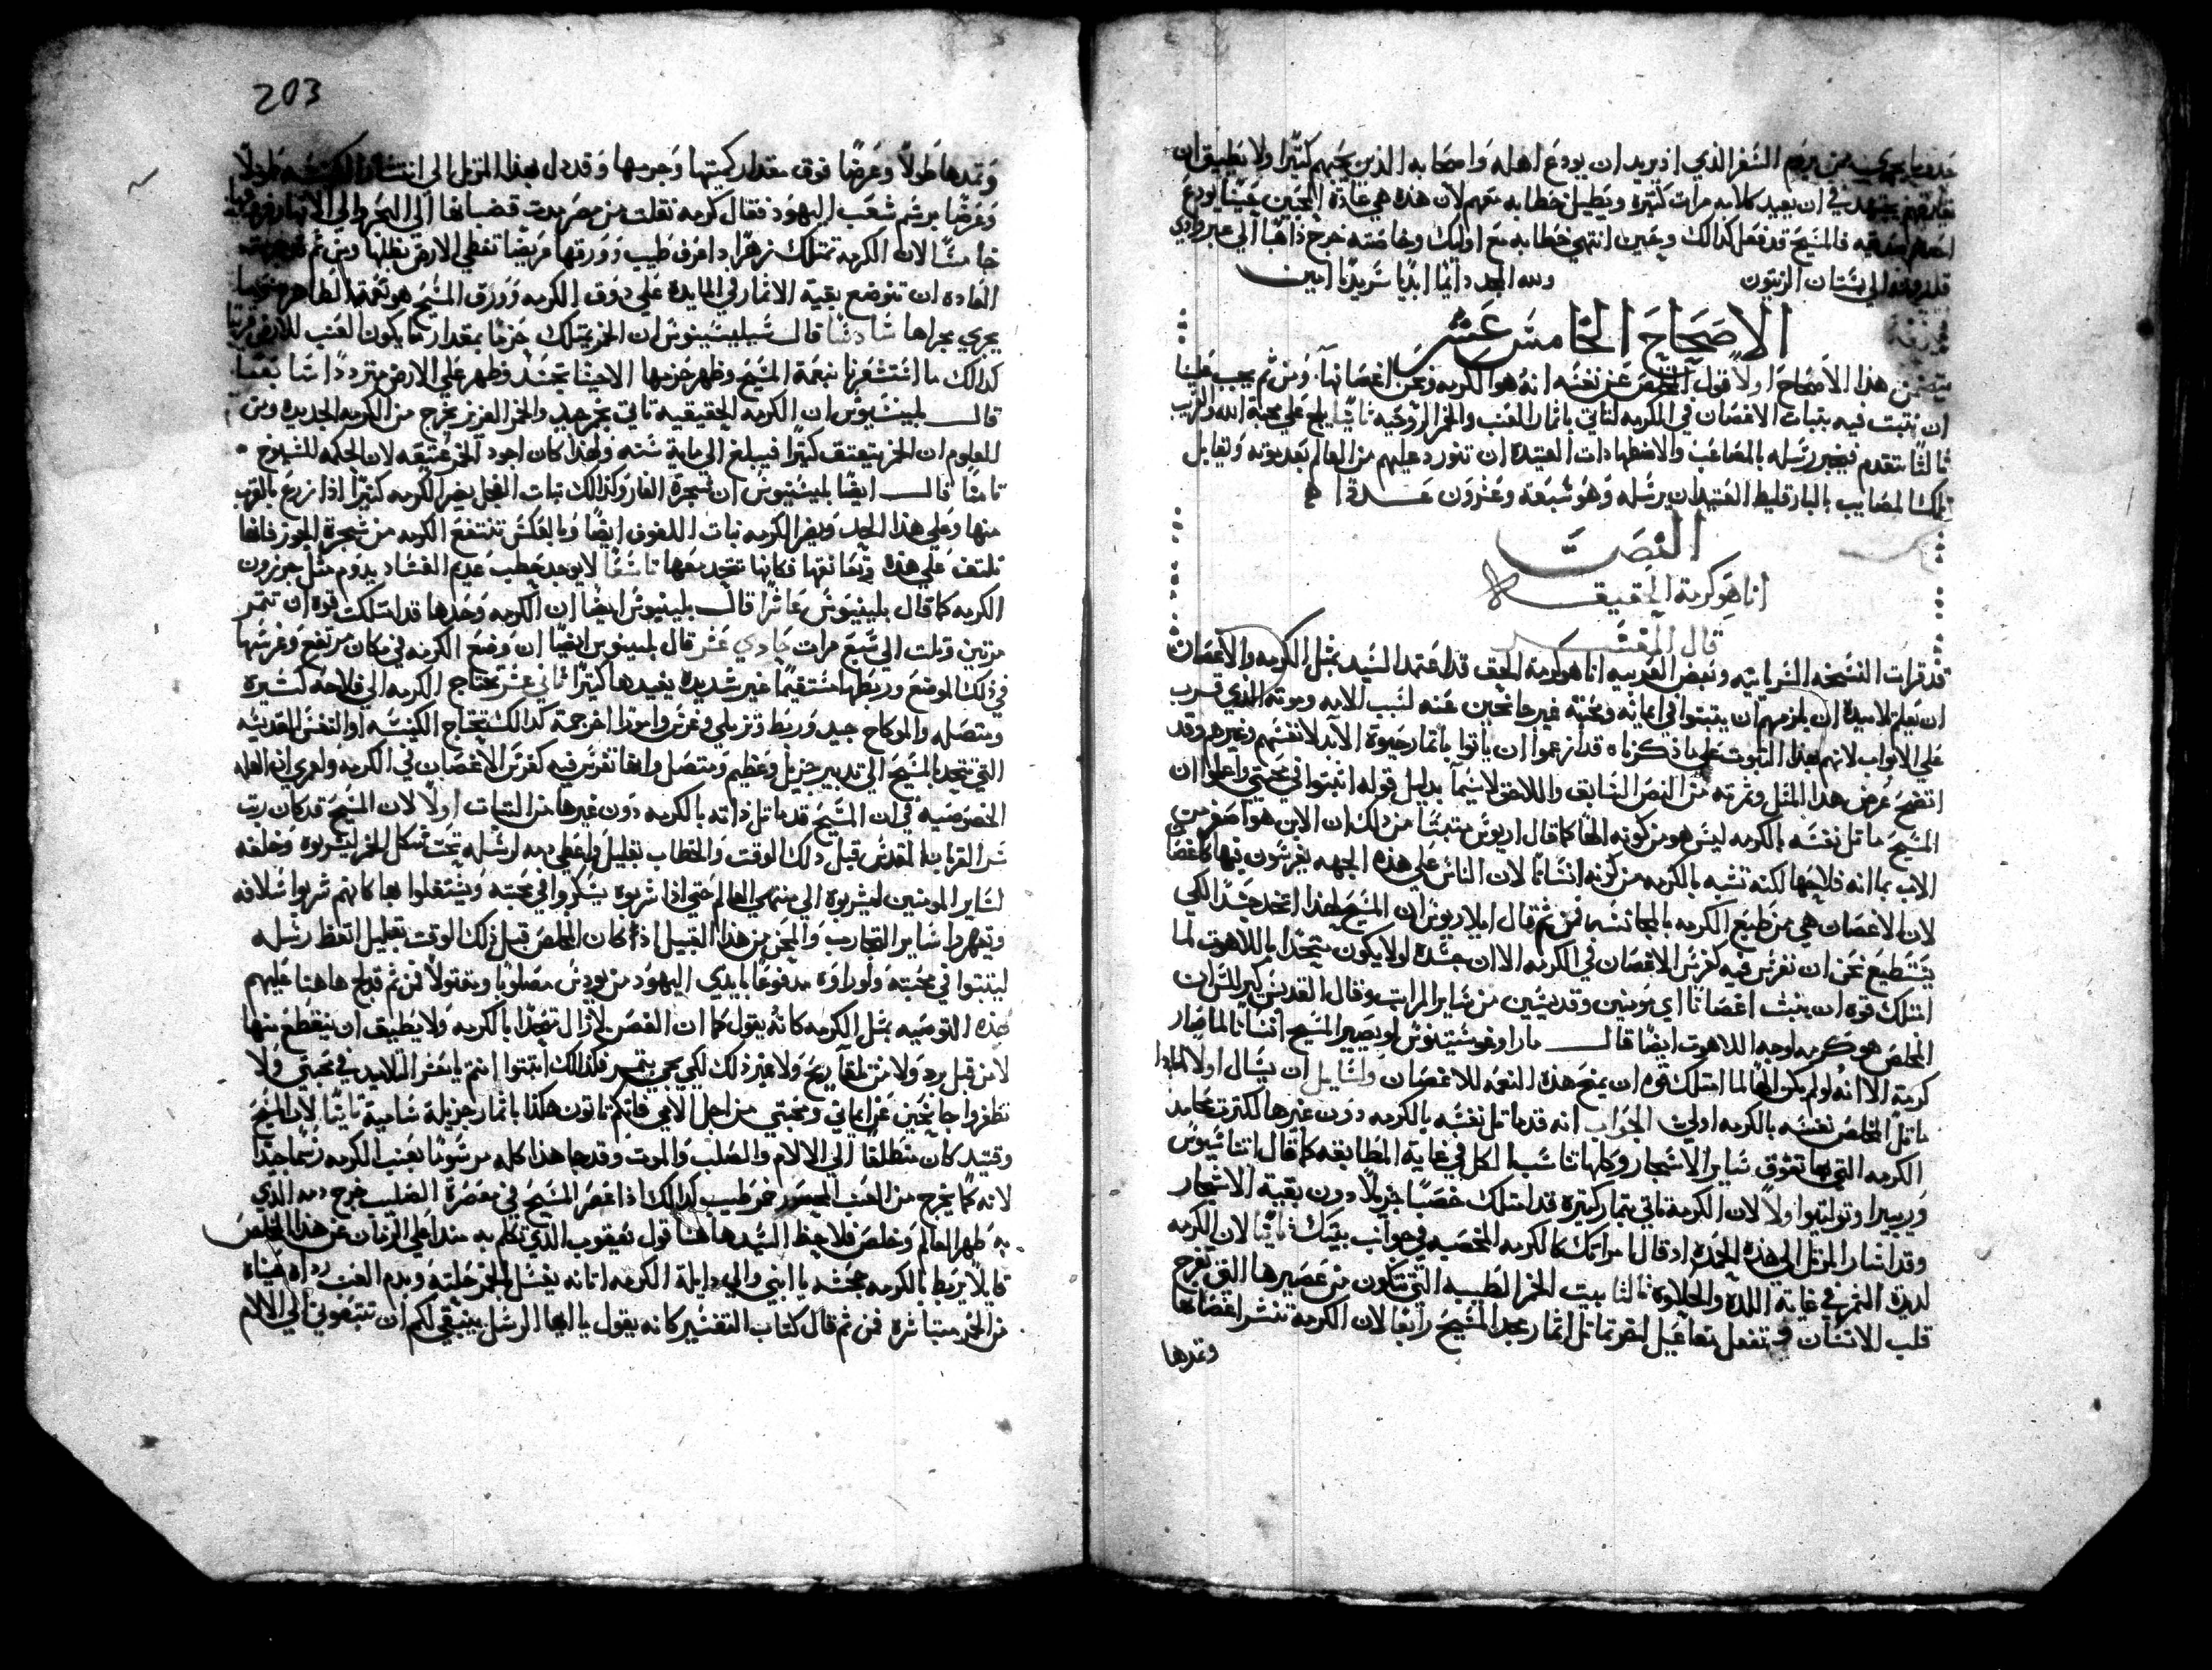 يجري من يروم السفر الذي اذ يريد ان يودع اهله واصحابه الذين يحبهم كثيرا ولا يطيق ان
يفارقهم يجتهد في ان يعيد كلامه مرات كثيره ويطيل خطابه معهم لان هذه هي عادة المحبين عينا يودع
فالمسيح قد فعل كذالك وحين انتهي خطابه مع اوليك وخاصته خرج ذاهبا الي عبر وادي
الي بستان الزيتون ولله المجد دايما ابديا سرمديا امين
الاصحاح الخامس عشر
يتضمن هذا الاصحاح اولا قول المخلص عن نفسه انه هو الكرمه ونحن اغصانها ومن ثم يجب علينا
ان نتبت فيه بتبات الاغصان في الكرمه لناتي باثمار العنب والخمر الروحيه ثانيا يلج علي محبة الله والقريب
ثالثا يتقدم فيخبر رسله بالمصاعب والاضطهادات العتيده ان تتورد عليهم من العالم بعد موته وتقابل
تلك المصايب بالبارقليط العتيد ان يرسله وهو سبعه وعشرون عددا
النص
انا هو كرمة الحقيقه
قال المفسر
قد قرات النسخه السريانيه وبعض العربيه انا هو كرمة الحق قد اعتمد السيد بمثل الكرمه والاغصان
ان يعلم تلاميده ان يلزمهم ان يتبتوا في ايمانه ومحبته غير جانحين عنه لسبب الامه وموته الذي قرب
علي الابواب لانهم بهذا التبوت علي ما ذكرناه قد ازمعوا ان ياتوا باثمار حيوة الابد لانفسهم وغيرهم وقد
اتضح غرض هذا المثل وثمرته من النص السابق واللاحق لاسيما بدليل قوله اتبتوا في محبتي واعلموا ان
المسيح ماثل نفسه بالكرمه ليس هو من كونه الها كما قال اريوس متبتا من ذلك ان الابن هو اصغر من
الاب بما انه فلاحها لكنه تشبه بالكرمه من كونه انسانا لان الناس علي هذه الجهه يغرسون فيها كاغصان
لان الاغصان هي من طبع الكرمه بالمجانسه فمن ثم قال ايلاريوس ان المسيح لهذا اتخد جسدا لكي
يستطيع نحن ان نغرس فيه كغرس الاغصان في الكرمه الا ان جسده لو لا يكون متحدا باللاهوت لما
امتلك قوه ان ينبت اغصانا اي مومنين وقديسين من ساير المراتب وقال القديس كيرللس ان
المخلص هو كرمه اوجه اللاهوت ايضا قال مار اوغوستينوس لو يصير المسيح انسانا لما صار
كرمة الا انه لو لم يكن الها لما امتلك قوه ان يمنح هذه النعمه للاغصان ولسايل ان يسال اولا لماذا
ماثل المخلص نفسه بالكرمه اولي الجواب انه قد ماثل نفسه بالكرمه دون غيرها لكثرت محامد
الكرمه التي بها تفوق ساير الاشجار وكلها تناسب الكل في غاية المطابقه كما قال اتناسيوس
وريبيرا وتوليتوا اولا لان الكرمة تاتي بثمار كثيره قد امتلك خصبا جزيلا دون بقية الاشجار
وقد اشار المرتل الي هذه الحمده اد قال امراتك كالكرمه المخصبه في جوانب بيتك ثانيا لان الكرمه
لديدة الثمر في غاية اللدة والحلاوه ثالثا بيت الخمر الطيبه التي تتكون من عصيرها التي تفرح
قلب الانسان وتفعل مفاعيل اخر تماثل اثمار مجد المسيح رابعا لان الكرمة تنشر اغصانها
وتمدها
203
وتمدها طولا وعرضا فوق مقدار كميتها وجرمها وقد دل بهذا المرتل الي انتشار الكنيسه طولا
وعرضا برسم شعب اليهود فقال كرمه نقلت من مصر مدت قضبانها الي البحر والي الانهار فروعها
خامسا لان الكرمه تمتلك زهرا دا عرف طيب وورقها عريضا تغطي الارض بظلها ومن ثم قد جرت
العاده ان توضع بقية الاثمار في المايده علي ورق الكرمه وورق المسيح هو نعمة الظاهر
يجري مجراها سادسا قال ان الخمر يمتلك حزما بمقدار ما يكون العنب للارض قريبا
كذالك ما استشعرنا نبعة المسيح وظهر حزمها الا حينما تجسد وظهر علي الارض مترددا سابعا
قال بلينيوس ان الكرمه الحقيقيه تاتي بخمر جيد والخمر العزيز يخرج من الكرمه الجديده ومن
المعلوم ان الخمر يتعتق كثيرا فيبلغ الي ماية سنه ولهذا كان اجود الخمر عتيقه لان الحكمه للشيوخ
ثامنا قال ايضا بلينيوس ان شجرة الغار وكذالك نبات الفجل يضر الكرمه كثيرا اذا زرع بالقرب
منها وعلي هذا الحد ويضر الكرمه نبات الملفوف ايضا وبالعكس تنتفع الكرمه من شجرة الجوز فانها
تلتف علي هذه وتعانقها فكانها تتحد معها تاسعا لا يوجد حطب عديم الفساد يدوم مثل جوزون
الكرمه كما قال بلينيوس عاشرا قال بلينيوس ايضا ان الكرمه وحدها قد امتلكت قوه ان تثمر
مرتين وثلت الي سبع مرات حادي عشر قال بلينيوس ايضا ان وضع الكرمه في مكان مرتفع وغرسها
في ذلك الموضع وربطها مستقيما غير شديده يفيدها كثيرا ثاني عشر تحتاج الكرمه الي فلاحة كثيره
ومتصله والي كاح جيد وربط وتزبيل وغرس وامورا اخر جمه كذالك تحتاج الكنيسه او النفس القديسه
التي تتحد بالمسيح الي تدبير جزيل وعظيم ومتصل وانها تغرس فيه كغرس الاغصان في الكرمه ولعمري ان العله
الخصوصيه في ان المسيح قد ماثل ذاته بالكرمه دون غيرها من النباتات اولا لان المسيح قد كان رتب
سر القربان المقدس قبل ذلك الوقت والخطاب بقليل واعطي دمه لرسله تحت شكل الخمر ليشربوه وخلفه
لساير المومنين ليشربوه الي منتهي العالم حتي اذا شربوه يسكروا في محبته ويشتغلوا بها كانهم شربوا سلافه
ويقهروا ساير التجارب والمحن من هذا القبيل اذا كان المخلص قبل ذلك الوقت بقليل اتعظ رسله
ليتبتوا في محبته ولو راوه مدفوعا بايدي اليهود من يودس مصلوبا ومقتولا فمن ثم قد لج هاهنا عليهم
بهذه التوصيه بمثل الكرمه كانه يقول كما ان الغصن لا زال متحدا بالكرمه ولا يطيق ان ينقطع منها
لا من قبل برد ولا من تلقا ريح ولا غير ذلك لكي يحيي يتمر فكذالك اتبتوا انتم يا معشر التلاميد في محبتي ولا
تظهروا جانحين عن ايماني ومحبتي من اجل الامي فانكم تاتون هكذا باثمار جزيلة سامية ثانيا لان المسيح
وقتيد كان متطلقا الي الالام والصلب والموت وقد جا هذا كله مرسوما بعنب الكرمه رسما جدا
لانه كما يخرج من العنب المعصور خمر طيب كذالك اذا عصر المسيح في معصرة الصليب خرج دمه الذي
به طهر العالم وخلص فلاحظ السيد هاهنا قول يعقوب الذي تكلم به مند اعلي الزمان عن هذا المخلص
قايلا يربط بالكرمه جحشه يا ابني والي دايلة الكرمه اتانه يغسل بالخمر حلته وبدم العنب رداه عيناه
من الخمر متباشره فمن ثم قال كتاب التفسير كانه يقول يا ايها الرسل ينبغي لكم ان تتبعوني الي الالام